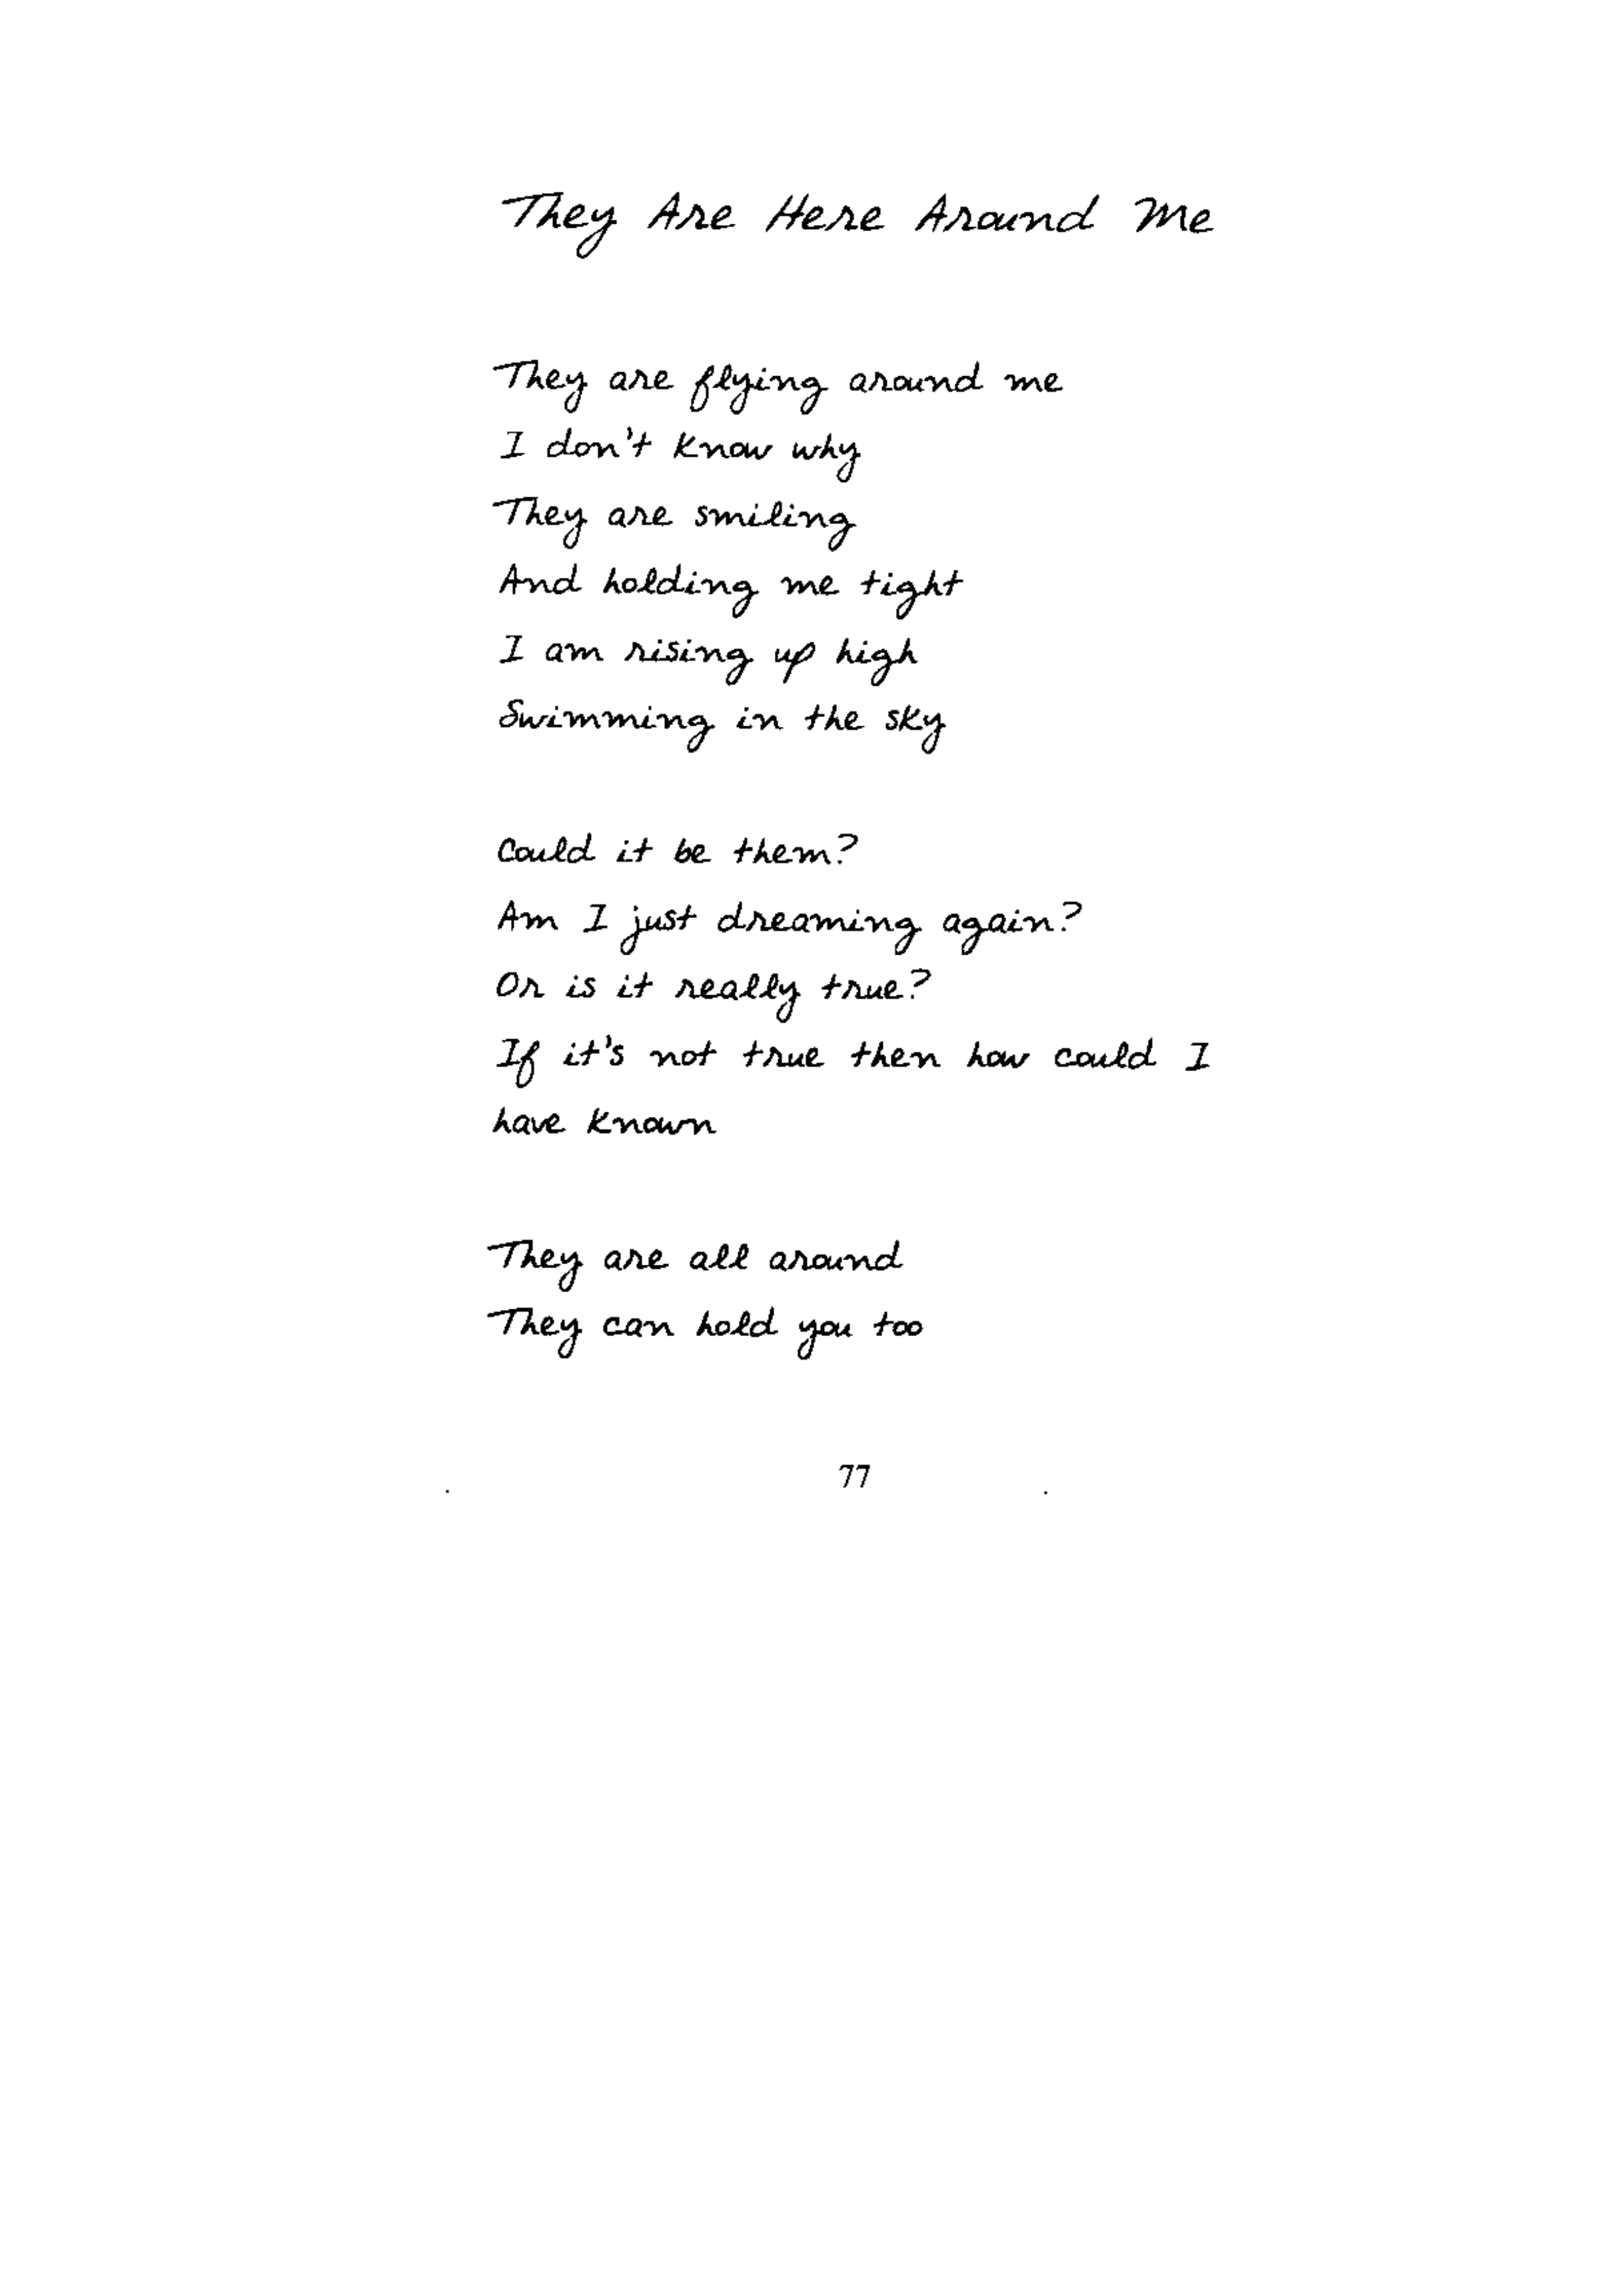 They Are Here Around Me
They are flying around me
I don't know why
They are smiling
And holding me tight
I am rising up high
Swimming in the sky
Could it be them?
Am I just dreaming again?
Or is it really true?
If it's not true then how could I
have known
They are all around
They can hold you too
77